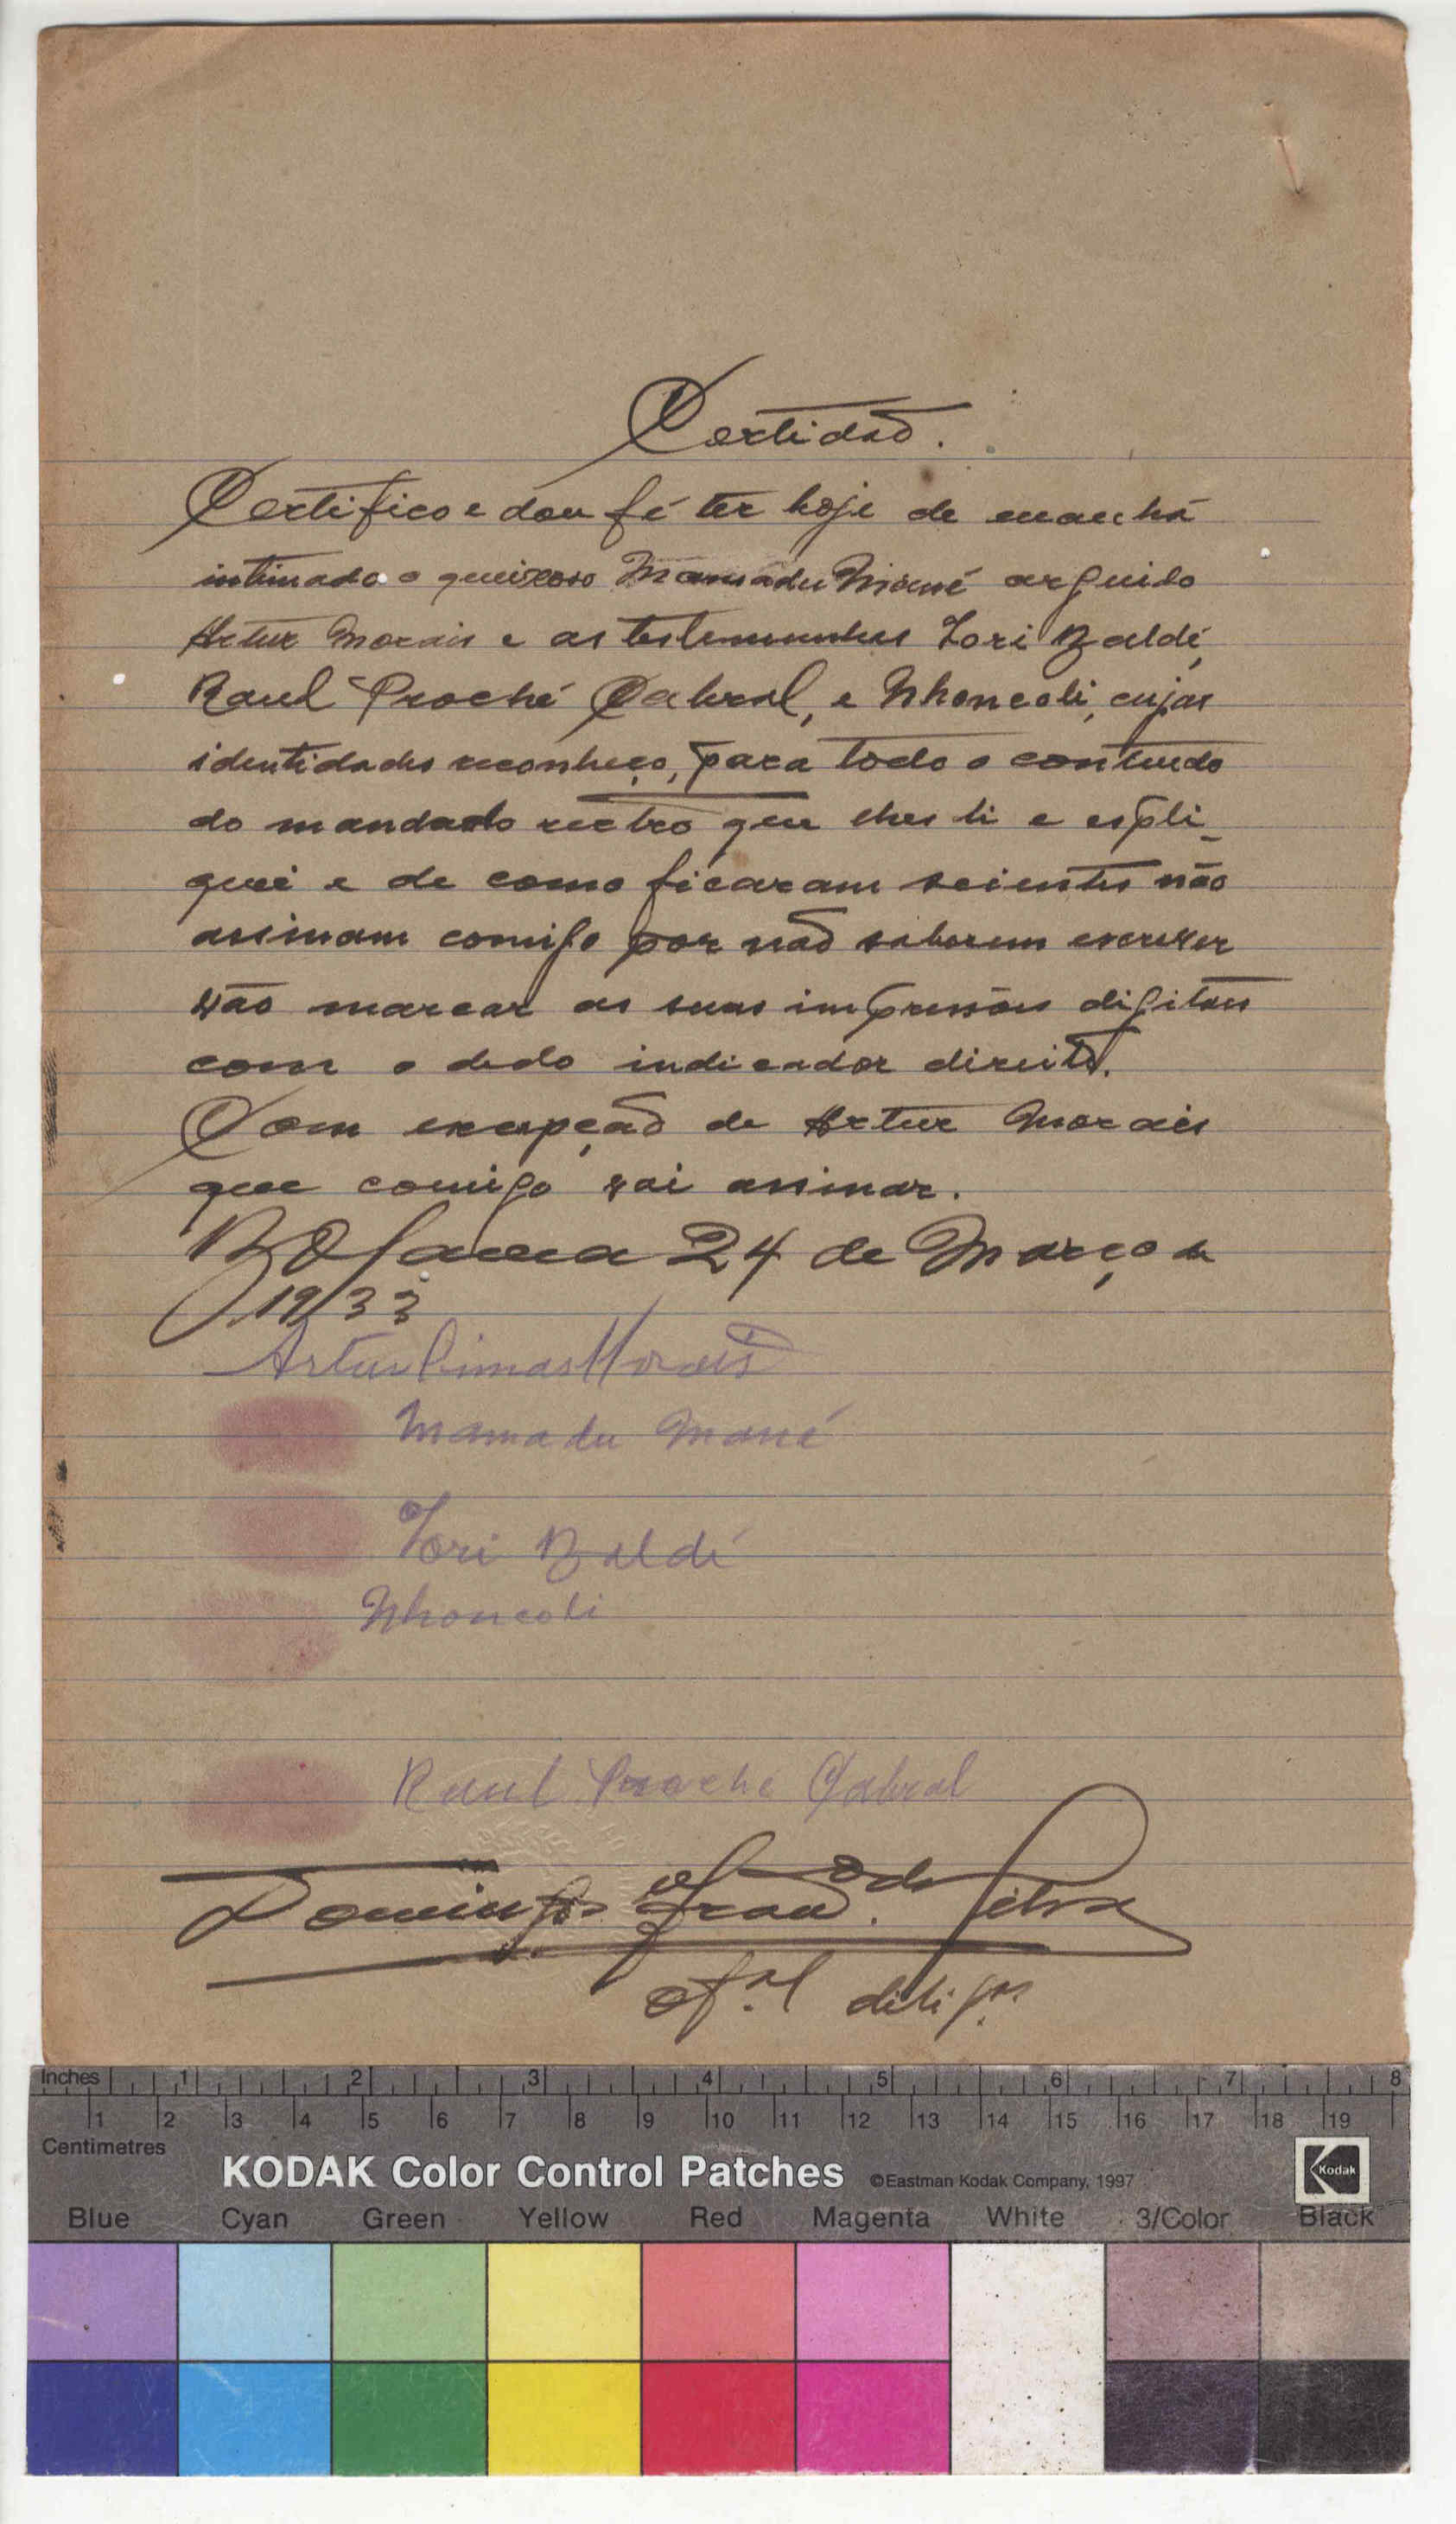 Certidão.
Certifico e dou fé ter hoje de manhã
intimado o queixoso Mamadu Mané arguido
Artur Morais e as testemunhas Lori Baldé,
Raul Proché Cabral, e Nhoncoli, cujas
identidades reconheço, para todo o conteudo
do mandado rectro que lhes li e espli-
quei e de como ficaram scientes não
assinam comigo por não saberem escrever
vão marcar as suas impressões digitais
com o dedo indicador direito.
Com excepção de Artur Morais
que comigo vai assinar.
Bolama 24 de Março de
1933
Artur Morais
Mamadu Mané
Lori Baldé
Nhoncoli
Raul Proché Cabral
Domingos da Silva
Of.al dilig.as
Inches 1 2 3 4 5 6 7 8
1 2 3 4 5 6 7 8 9 10 11 12 13 14 15 16 17 18 19
Centimetres
KODAK Color Control Patches ©Eastman Kodak Company, 1997 Kodak
Blue Cyan Green Yellow Red Magenta White 3/Color Black